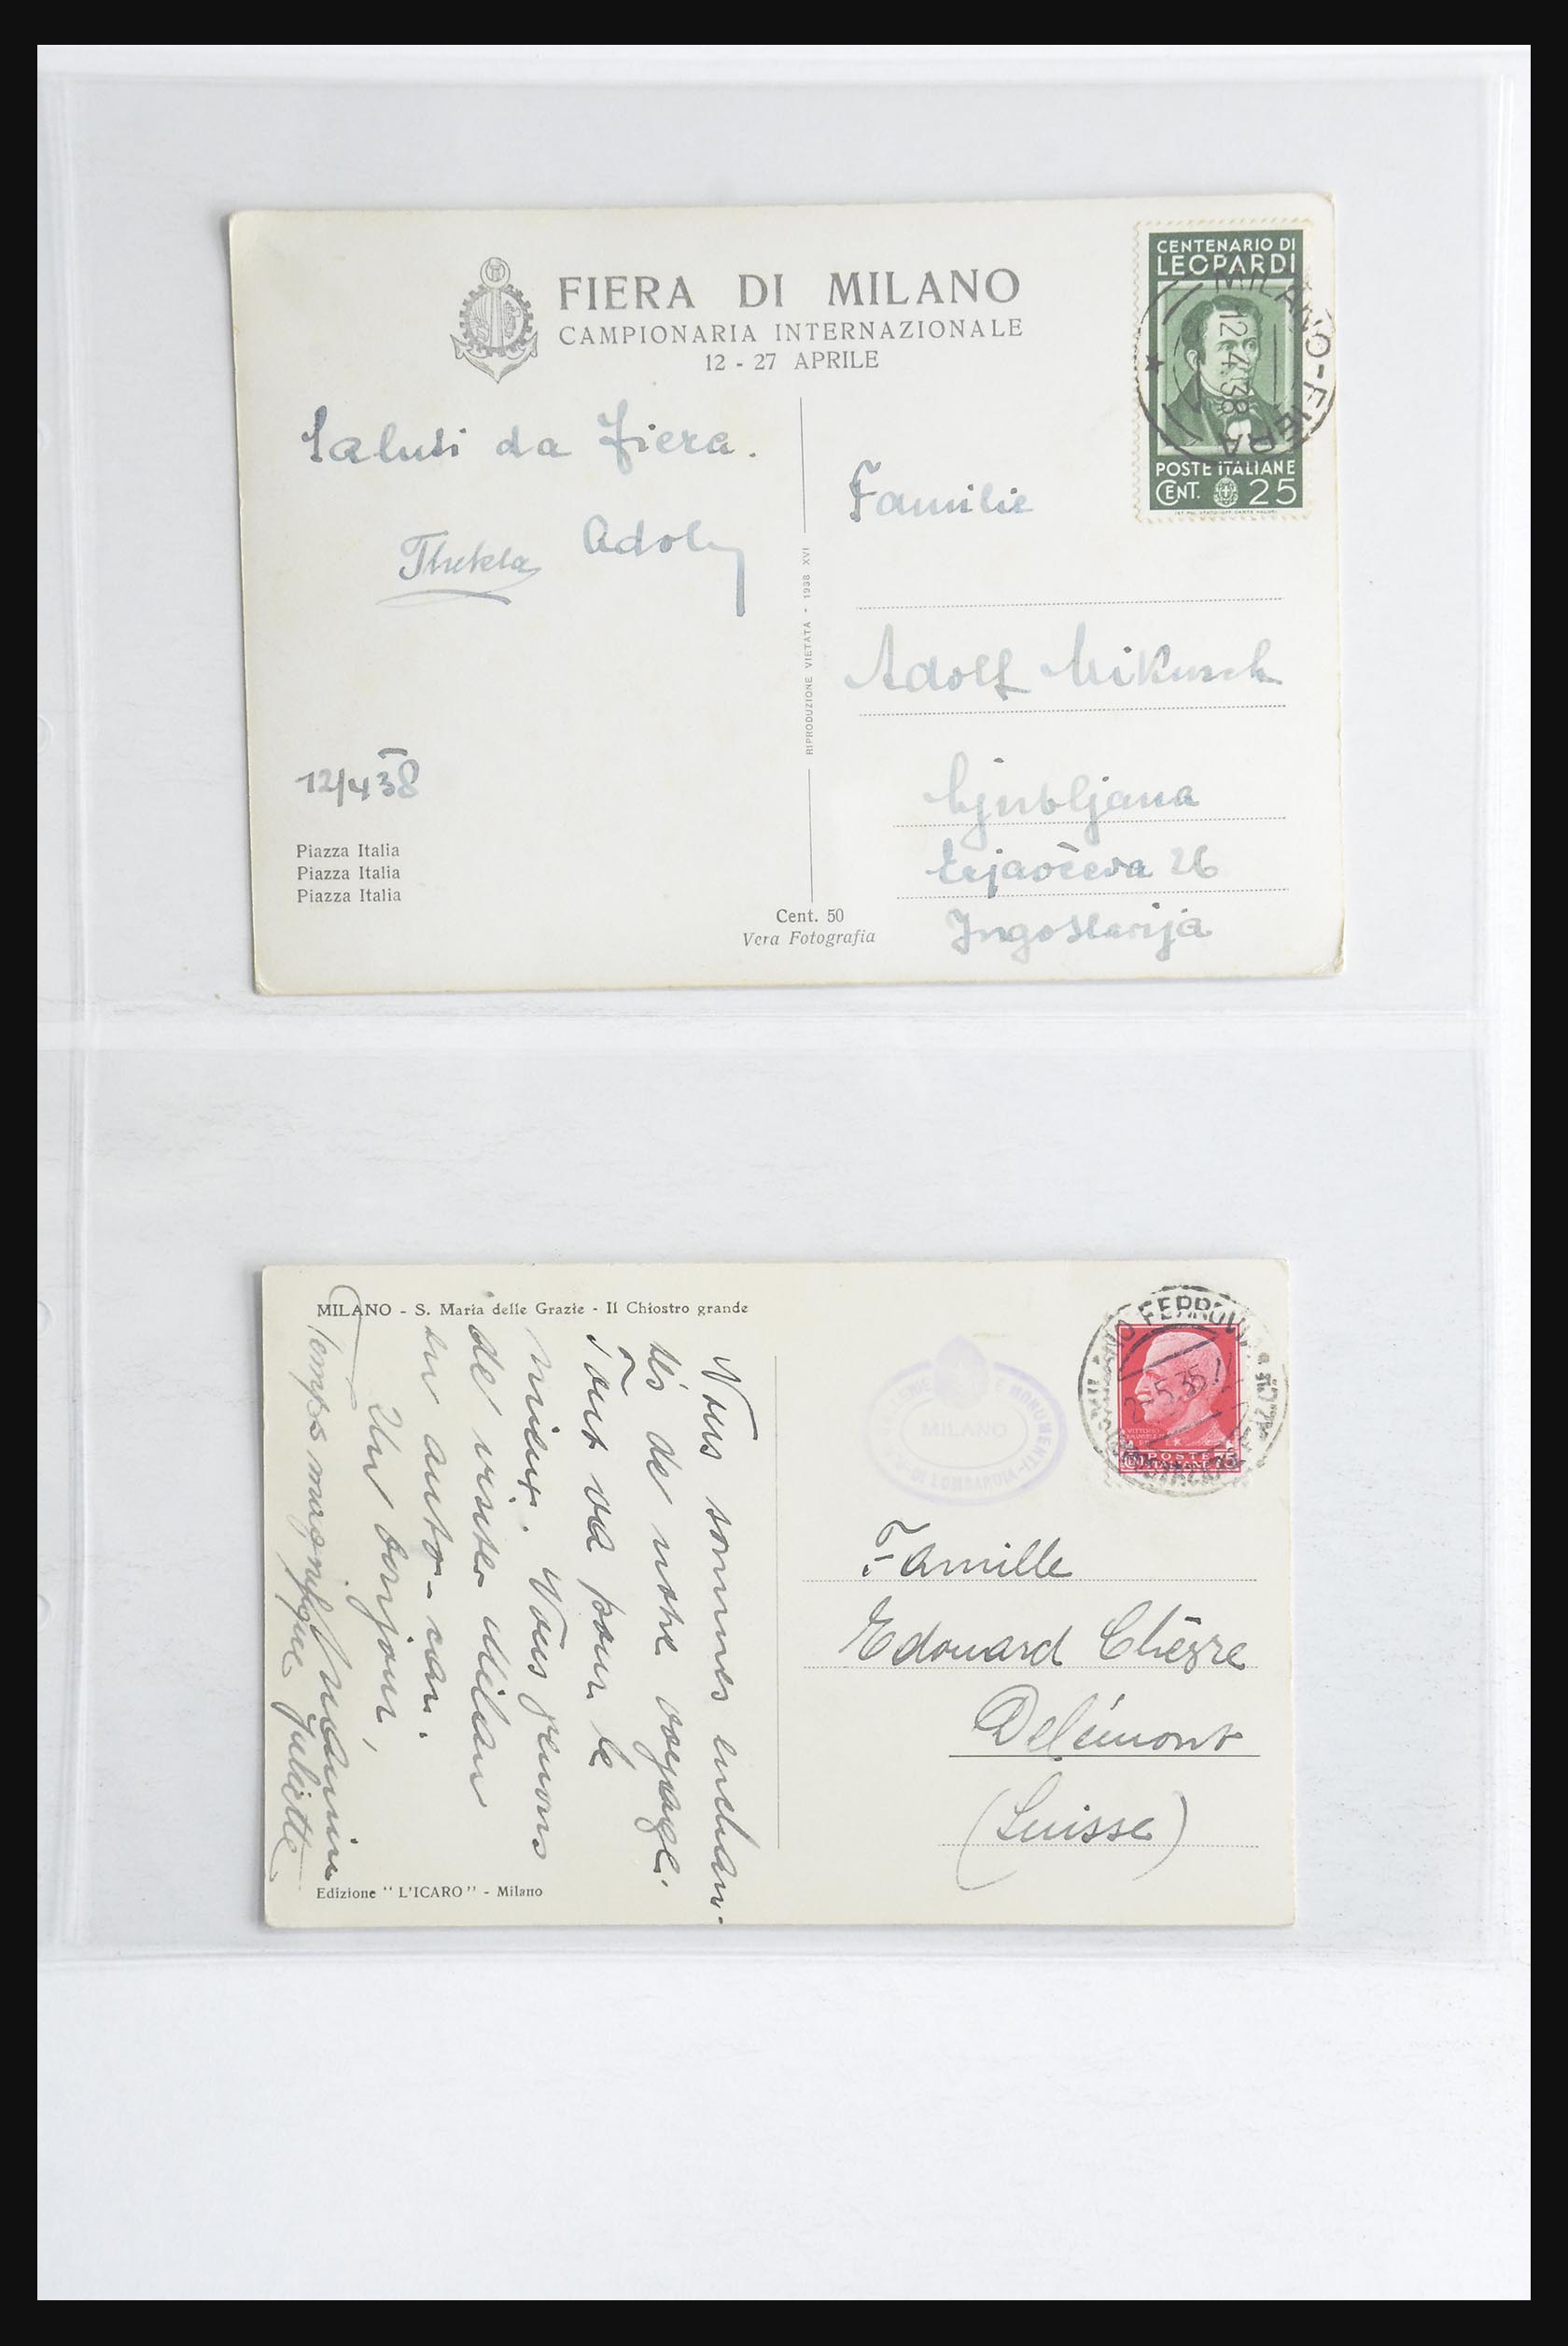 FIERA DI MILANO
CAMPIONARIA INTERNAZIONALE
12 - 27 APRILE
CENTENARIO DI
LEOPARDI
POSTE ITALIANE
CENT. 25
MILANO-FIERA
12.4.38
Saluti da Fiera.
Thekla Adolf
12/4 38
Piazza Italia
Piazza Italia
Piazza Italia
RIPRODUZIONE VIETATA - 1938 XVI
Cent. 50
Vera Fotografia
Familie
Adolf Mikusch
Ljubljana
Erjavčeva 26
Jugoslavija
MILANO - S. Maria delle Grazie - Il Chiostro grande
Nous sommes enchan-
tés de notre voyage.
Tout va pour le
mieux. Nous venons
de visiter Milan
en auto-car.
Un bonjour,
Temps magnifique Juliette
Edizione "L'ICARO" - Milano
E MONUMENTI
MILANO
DI LOMBARDIA
POSTE
Famille
Edouard Chèvre
Delémont
(Suisse)